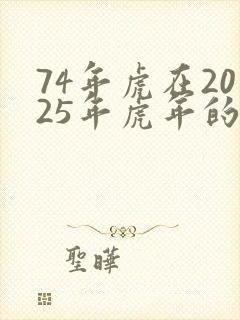 74年虎在20
25年虎年的
聖曄